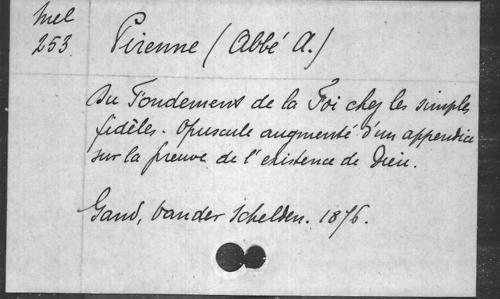 Mel
253
Pirenne (Abbé A.)
Du Fondement de la Foi chez les simples
fidèles. Opuscule augmenté d'un appendice
sur la preuve de l'existence de Dieu.
Gand, Vander Schelden. 1876.